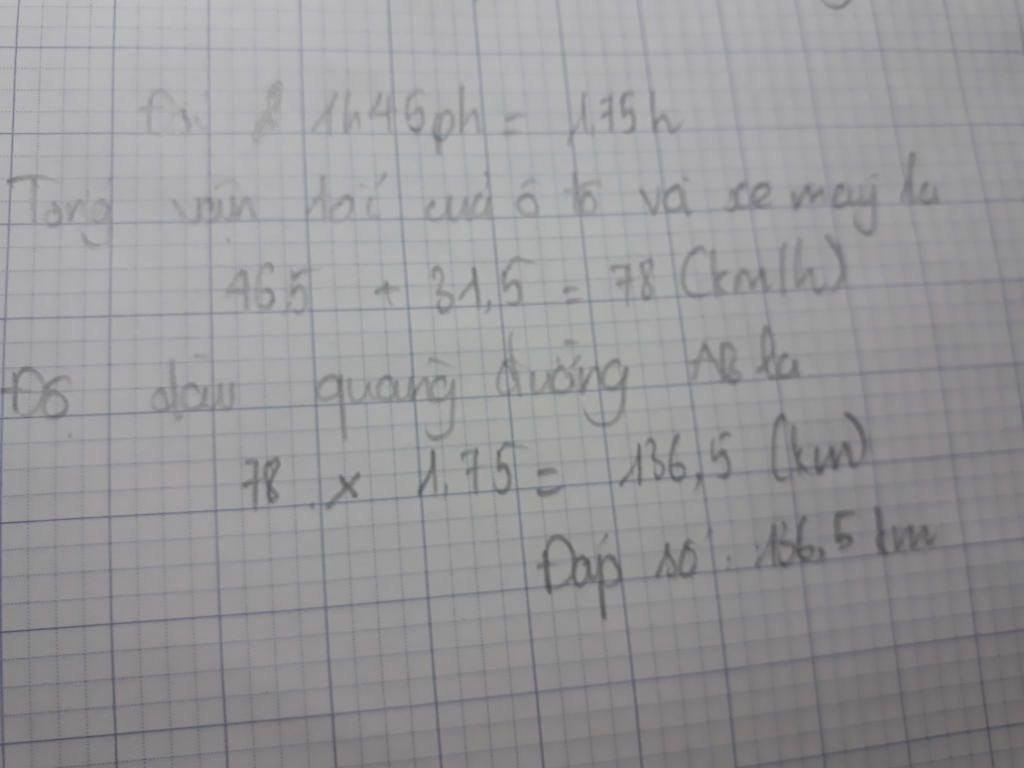 Đổi: 1h45ph = 1,75h
Tổng vận tốc của ô tô và xe máy là
46,5 + 31,5 = 78 (km/h)
Độ dài quãng đường AB là
78 x 1,75 = 136,5 (km)
Đáp số: 136,5 km